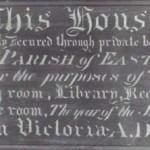 This Hous
ly secured through private b
PARISH of EAST
r the purposes of
g room, Library, Rec
e room, The year of the
n Victoria. A.D.